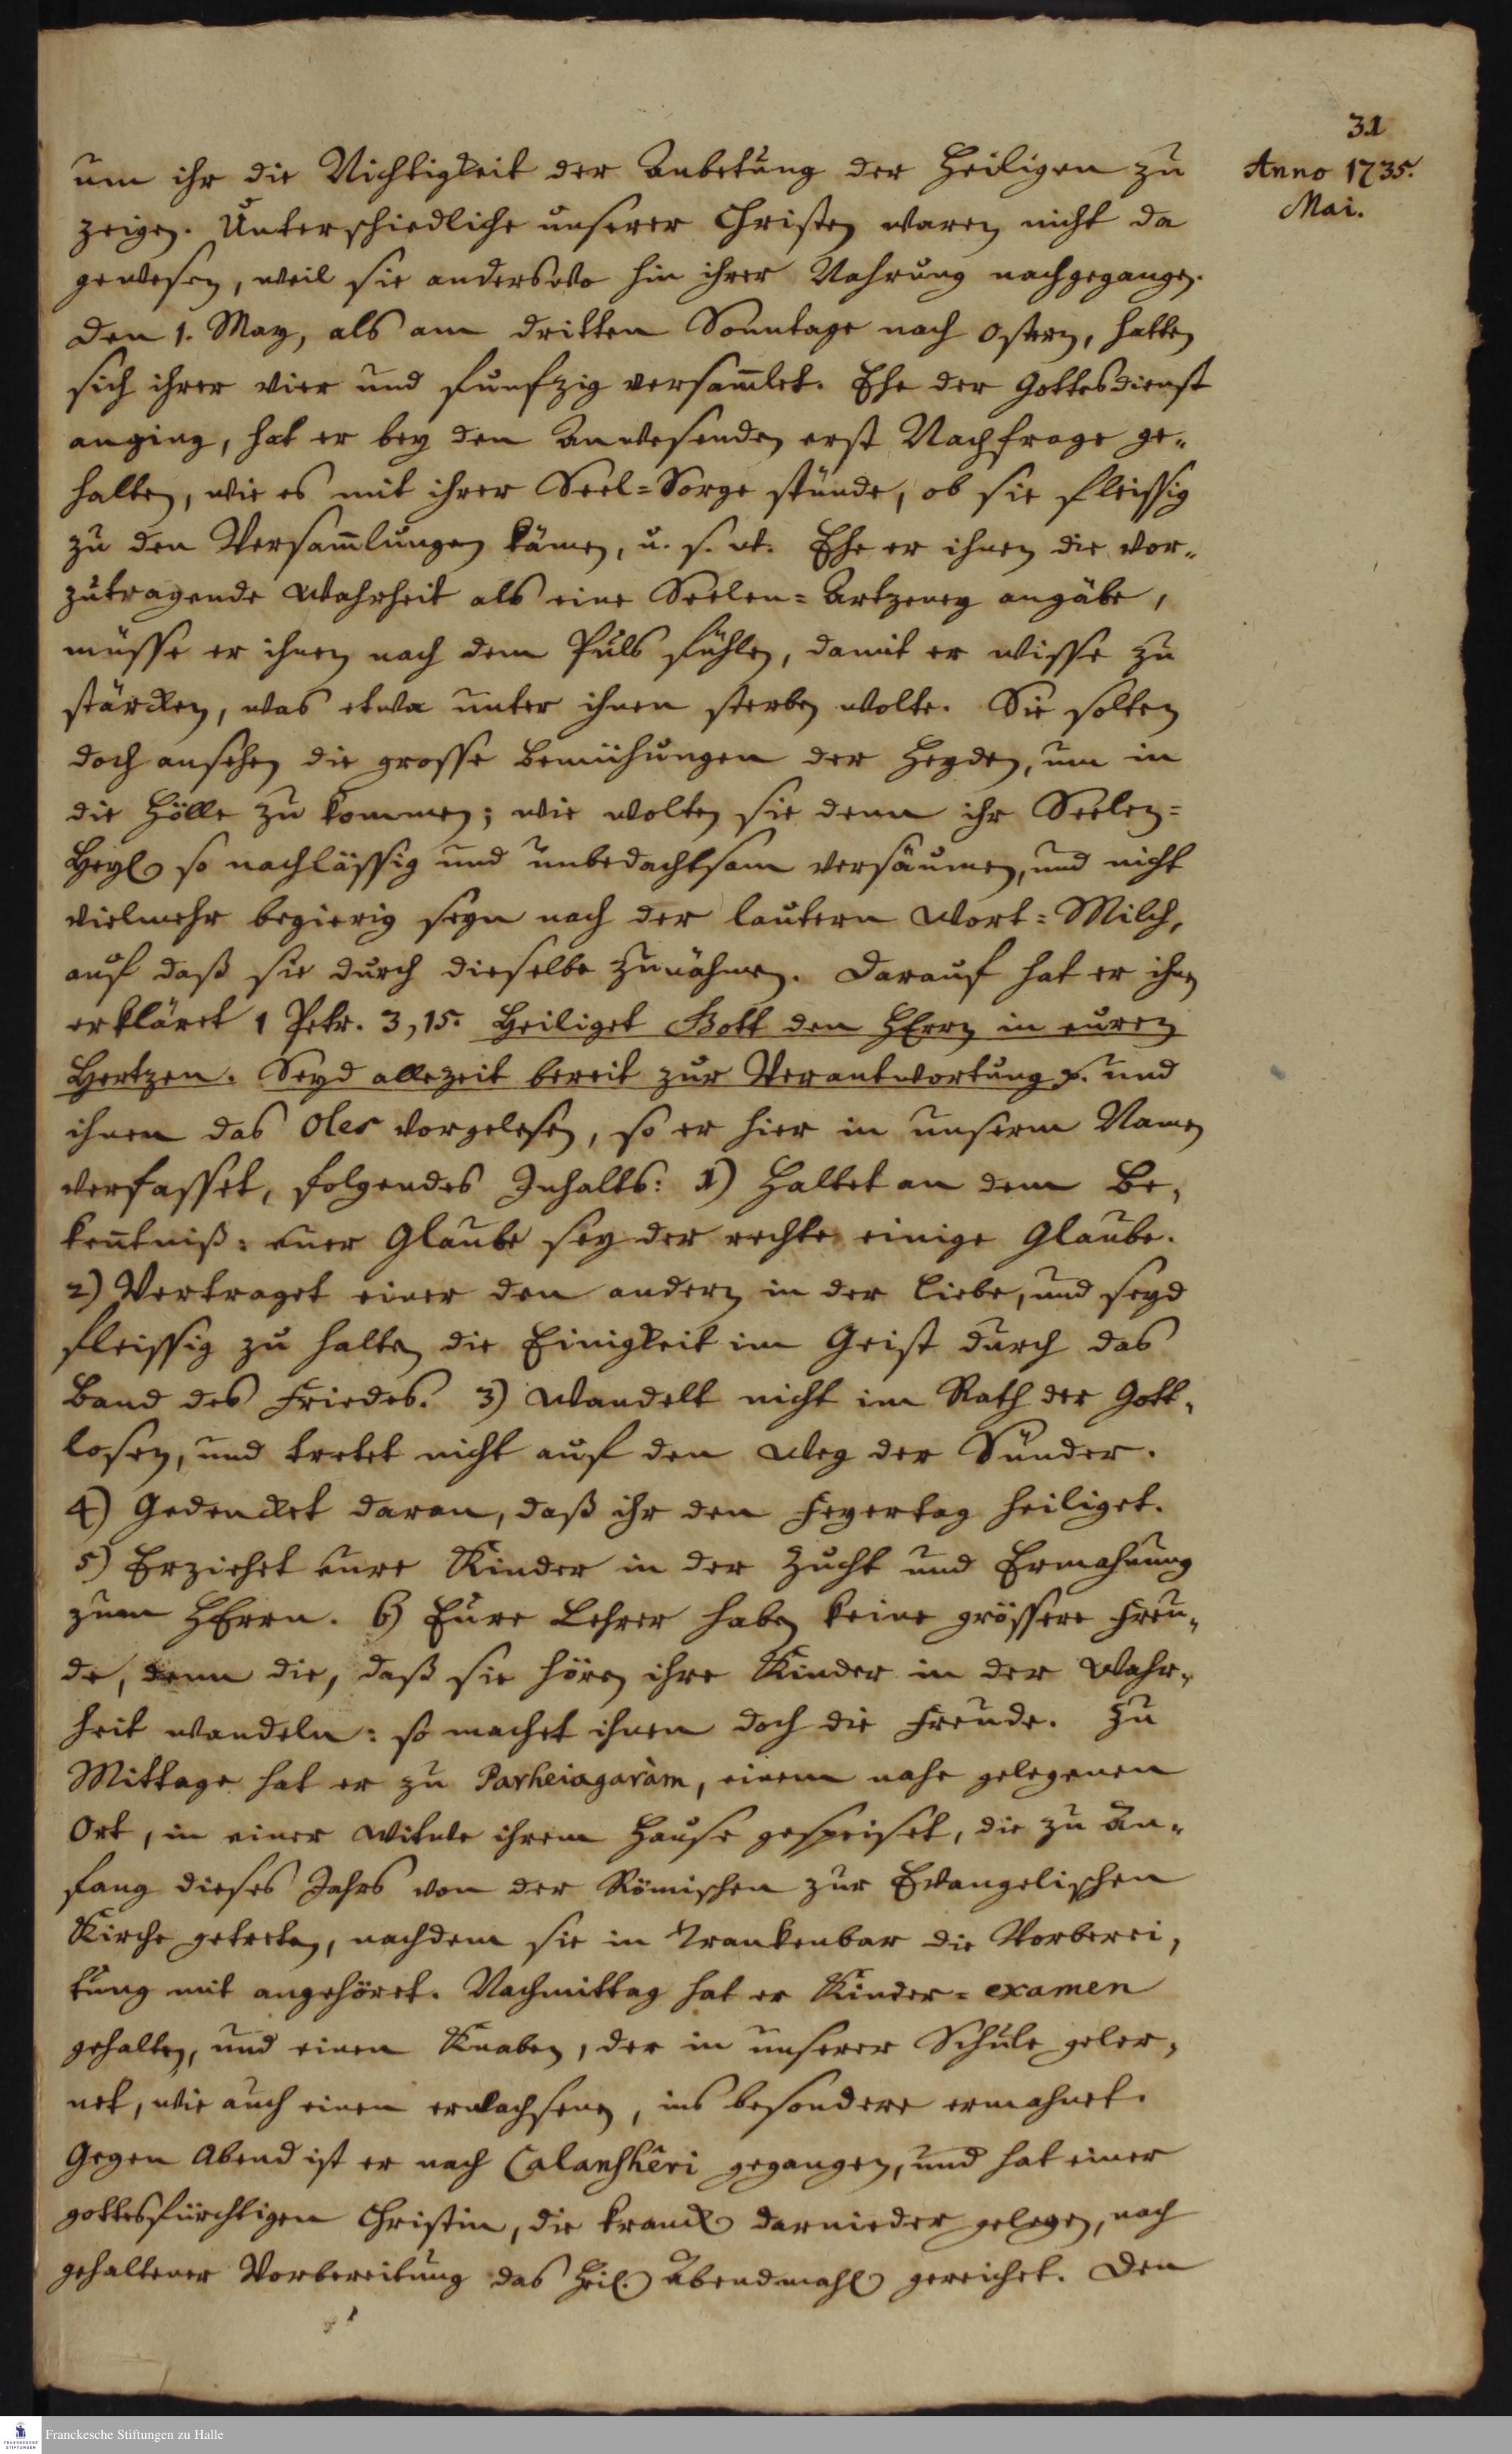 31
Anno 1735.
Mai.
um ihr die Nichtigkeit der Anbetung der Heiligen zu
zeigen. Unterschiedliche unserer Christen waren nicht da
gewesen, weil sie anderswo hin ihrer Nahrung nachgegangen.
Den 1. May, als am dritten Sonntage nach Ostern, hatten
sich ihrer vier und funfzig versam̅let. Ehe der Gottesdienst
anging, hat er bey den Anwesenden erst Nachfrage ge-
halten, wie es mit ihrer Seel-Sorge stünde, ob sie fleissig
zu den Versam̅lungen kämen, u. s. w. Ehe er ihnen die vor-
zutragende Wahrheit als eine Seelen-Artzeney angäbe,
müsse er ihnen nach dem Puls fühlen, damit er wisse zu
stärcken, was etwa unter ihnen sterben wolte. Sie solten
doch ansehen die grosse Bemühungen der Heyden, um in
die Hölle zu kommen; wie wolten sie denn ihr Seelen-
Heyl so nachlässig und unbedachtsam versäumen, und nicht
vielmehr begierig seyn nach der lautern Wort-Milch,
auf daß sie durch dieselbe zunähmen. Darauf hat er ihnen
erkläret 1 Petr. 3, 15. Heiliget Gott den HErrn in euren
Hertzen. Seyd allezeit bereit zur Verantwortung p. und
ihnen das Oles vorgelesen, so er hier in unserm Namen
verfasset, folgendes Inhalts: 1) Haltet an dem Be-
ken̅tniß: euer Glaube sey der rechte einige Glaube.
2) Vertraget einer den andern in der Liebe, und seyd
fleissig zu halten die Einigkeit im Geist durch das
Band des Friedes. 3) Wandelt nicht im Rath der Gott-
losen, und tretet nicht auf den Weg der Sünder.
4) Gedencket daran, daß ihr den Feyertag heiliget.
5) Erziehet eure Kinder in der Zucht und Ermahnung
zum HErrn. 6) Eure Lehrer haben keine grössere Freu-
de, denn die, daß sie hören ihre Kinder in der Wahr-
heit wandeln: so machet ihnen doch die Freude. Zu
Mittage hat er zu Parheiagaràm, einem nahe gelegenen
Ort, in einer Witwe ihrem Hause gespeiset, die zu An-
fang dieses Jahrs von der Römischen zur Evangelischen
Kirche getreten, nachdem sie in Trankenbar die Vorberei-
tung mit angehöret. Nachmittag hat er Kinder-examen
gehalten, und einen Knaben, der in unserer Schule geler-
net, wie auch einen erwachsenen, ins besondere ermahnet.
Gegen Abend ist er nach Calanshêri gegangen, und hat einer
gottesfürchtigen Christin, die kranck darnieder gelegen, nach
gehaltener Vorbereitung das Heil. Abendmahl gereichet. Den
Franckesche Stiftungen zu Halle